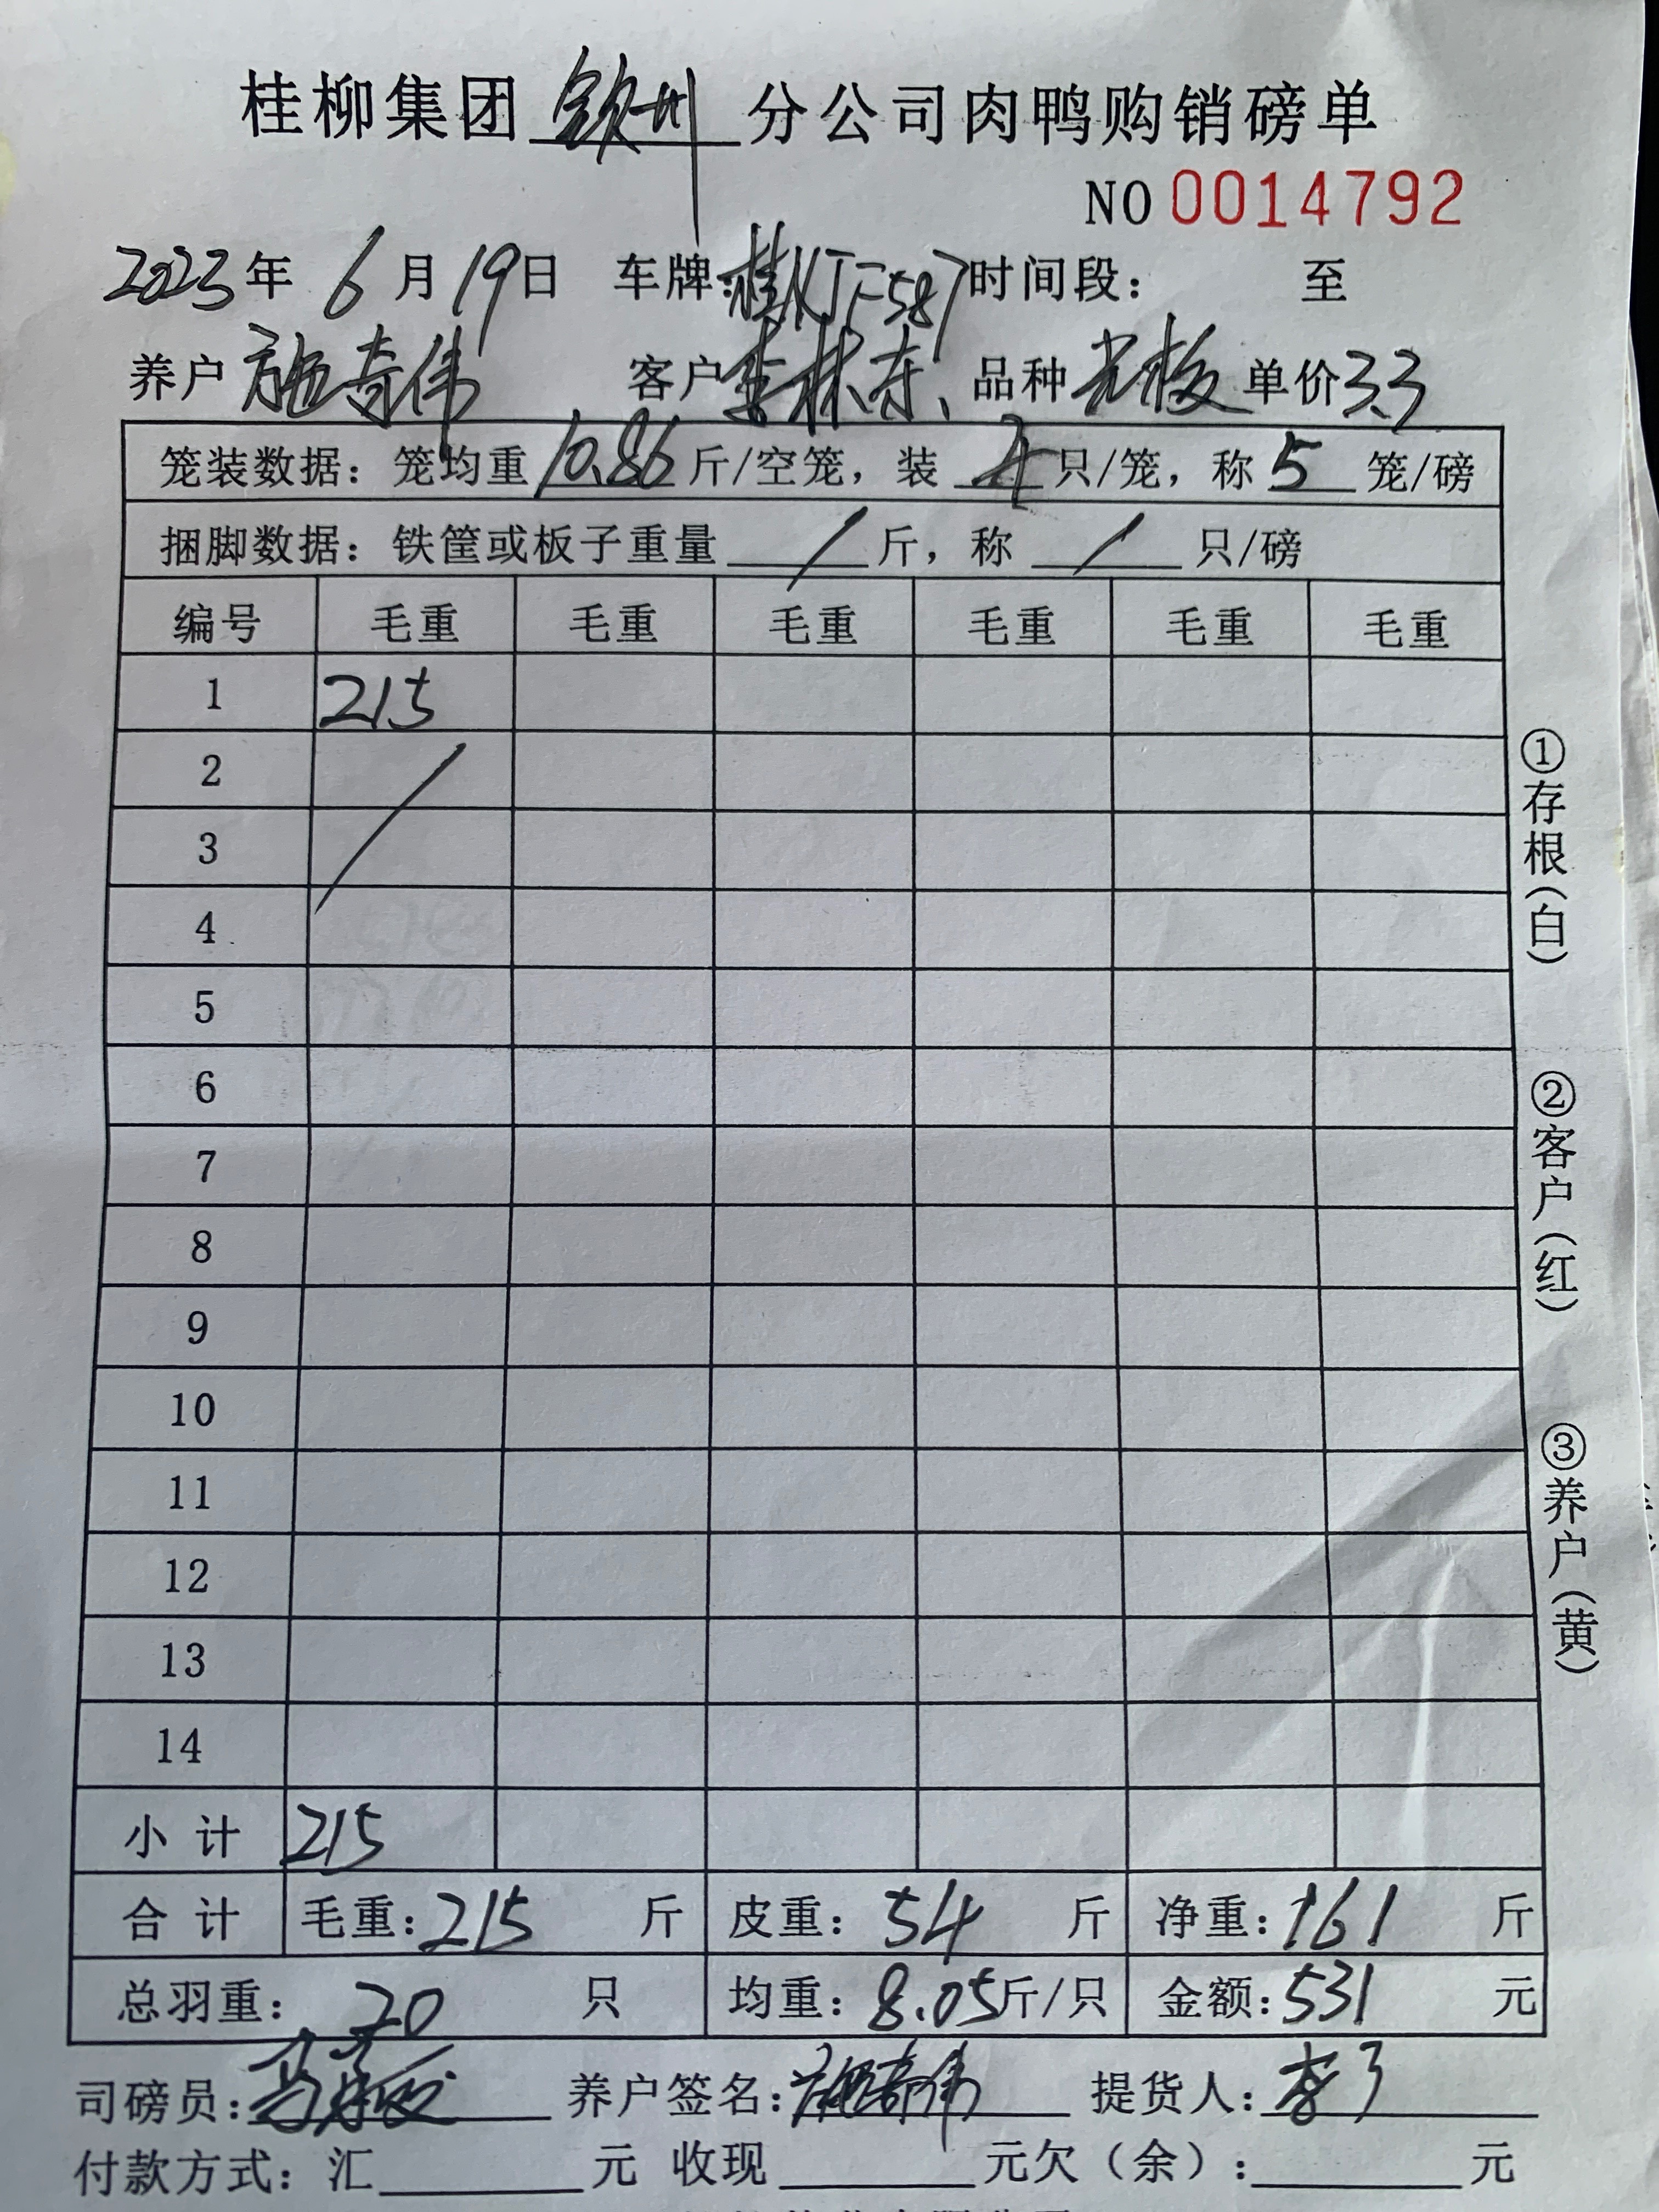 桂柳集团 钦州 分公司肉鸭购销磅单
NO 0014792
2023年 6月19日 车牌:桂KJF587 时间段: 至
养户 施奇伟 客户 李林东 品种 光板 单价 3.3
笼装数据: 笼均重 10.86 斤/空笼, 装 4 只/笼, 称 5 笼/磅
捆脚数据: 铁筐或板子重量 / 斤, 称 / 只/磅
编号 毛重 毛重 毛重 毛重 毛重 毛重
1 215
2
3
4
5
6
7
8
9
10
11
12
13
14
小计 215
合计 毛重: 215 斤 皮重: 54 斤 净重: 161 斤
总羽重: 20 只 均重: 8.05 斤/只 金额: 531 元
司磅员: 养户签名: 施奇伟 提货人: 李
付款方式: 汇 元 收现 元欠(余): 元
①存根(白)
②客户(红)
③养户(黄)